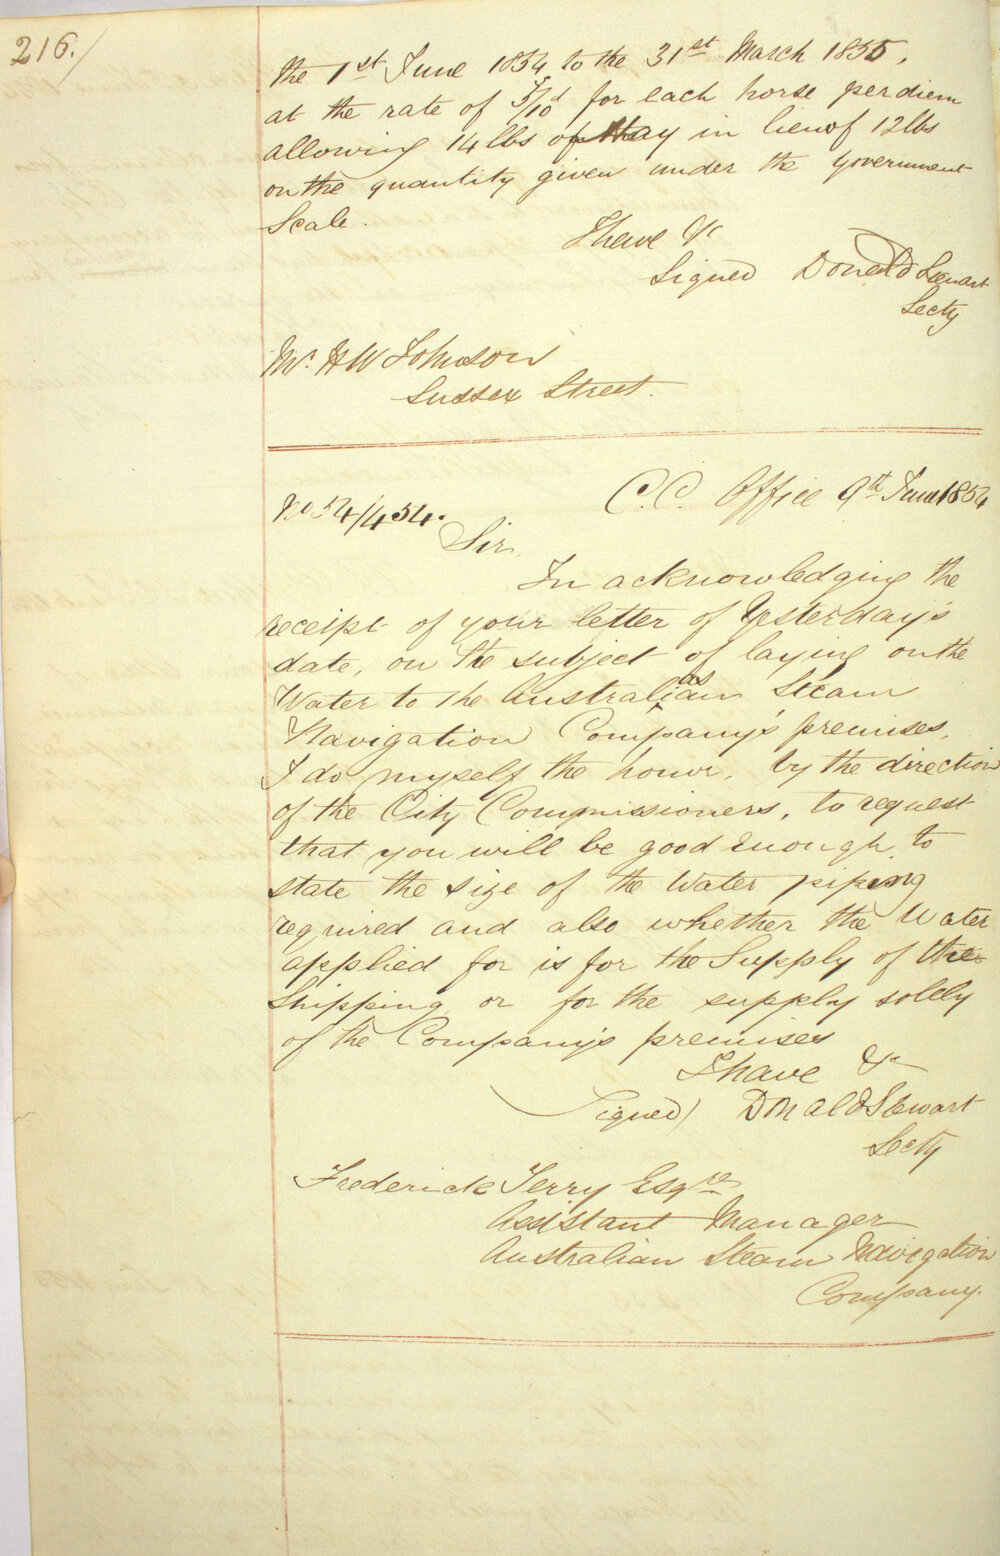 216.
the 1st June 1854 to the 31st March 1855,
at the rate of 5/10d for each horse per diem
allowing 14 lbs of Hay in lieu of 12 lbs
on the quantity given under the Government
Scale.
I have &c
Signed Donald Stewart
Secty
Mr. H W Johnson
Sussex Street.
C.C. Office 9th June 1854
No 54/454.
Sir,
In acknowledging the
receipt of your letter of Yesterday's
date, on the subject of laying on the
Water to the Australian Steam
Navigation Company's premises,
I do myself the honor, by the direction
of the City Commissioners, to request
that you will be good enough to
state the size of the Water piping
required and also whether the Water
applied for is for the Supply of the
Shipping or for the supply solely
of the Company's premises
I have &c
Signed) Donald Stewart
Secty
Frederick Terry Esqre
Assistant Manager
Australian Steam Navigation
Company.